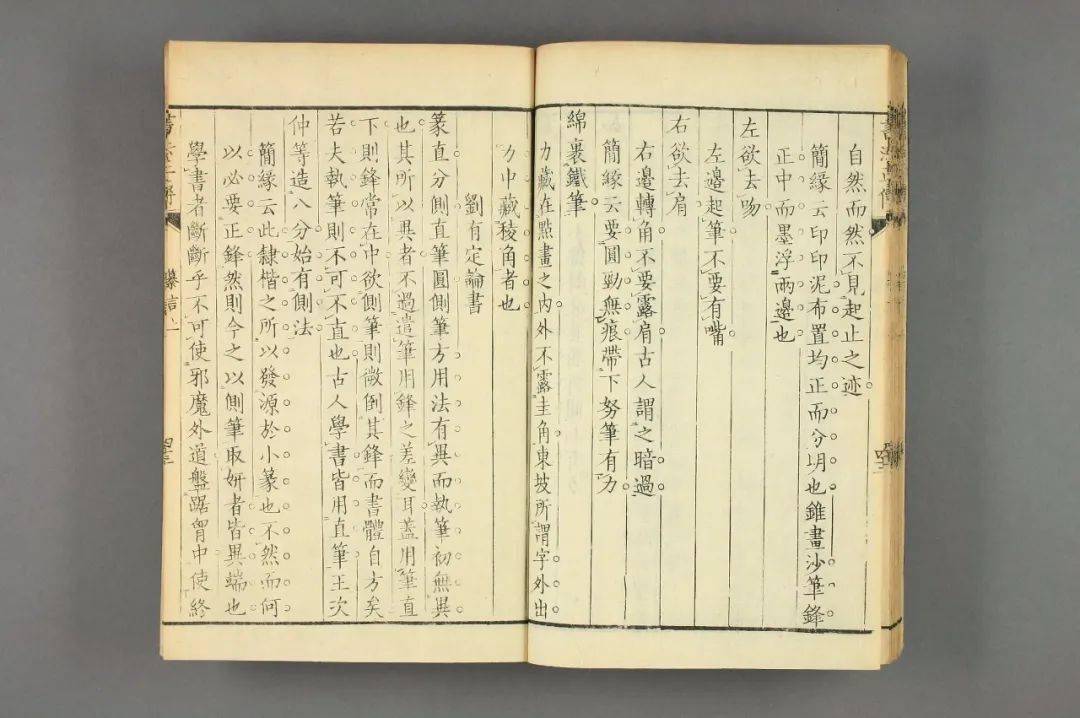 自然而然不見起止之迹
簡緣云印印泥布置均正而分明也錐畫沙筆鋒
正中而墨浮兩邊也
左欲去吻
左邊起筆不要有嘴
右欲去肩
右邊轉角不要露肩古人謂之暗過
簡緣云要圓勁無痕帶下努筆有力
綿裏鐵筆
力藏在點畫之内外不露圭角東坡所謂字外出
力中藏稜角者也
劉有定論書
篆直分側直筆圓側筆方用法有異而執筆初無異
也其所以異者不過遣筆用鋒之差變耳蓋用筆直
下則鋒常在中欲側筆則微倒其鋒而書體自方矣
若夫執筆則不可不直也古人學書皆用直筆王次
仲等造八分始有側法
簡緣云此隸楷之所以發源於小篆也不然而何
以必要正鋒然則今之以側筆取妍者皆異端也
學書者斷斷乎不可使邪魔外道盤踞胷中使終